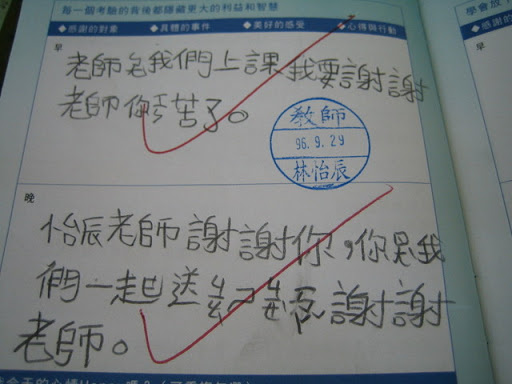 每一個考驗的背後都隱藏更大的利益和智慧
學會放
◆感謝的對象 ◆具體的事件 ◆美好的感受 ◆心得與行動
◆感謝的
早
早
老師名我們上課我要謝謝
老師你辛苦了。
教師
96.9.29
林怡辰
晚
怡辰老師謝謝你,你是我
們一起送
謝謝
老師。